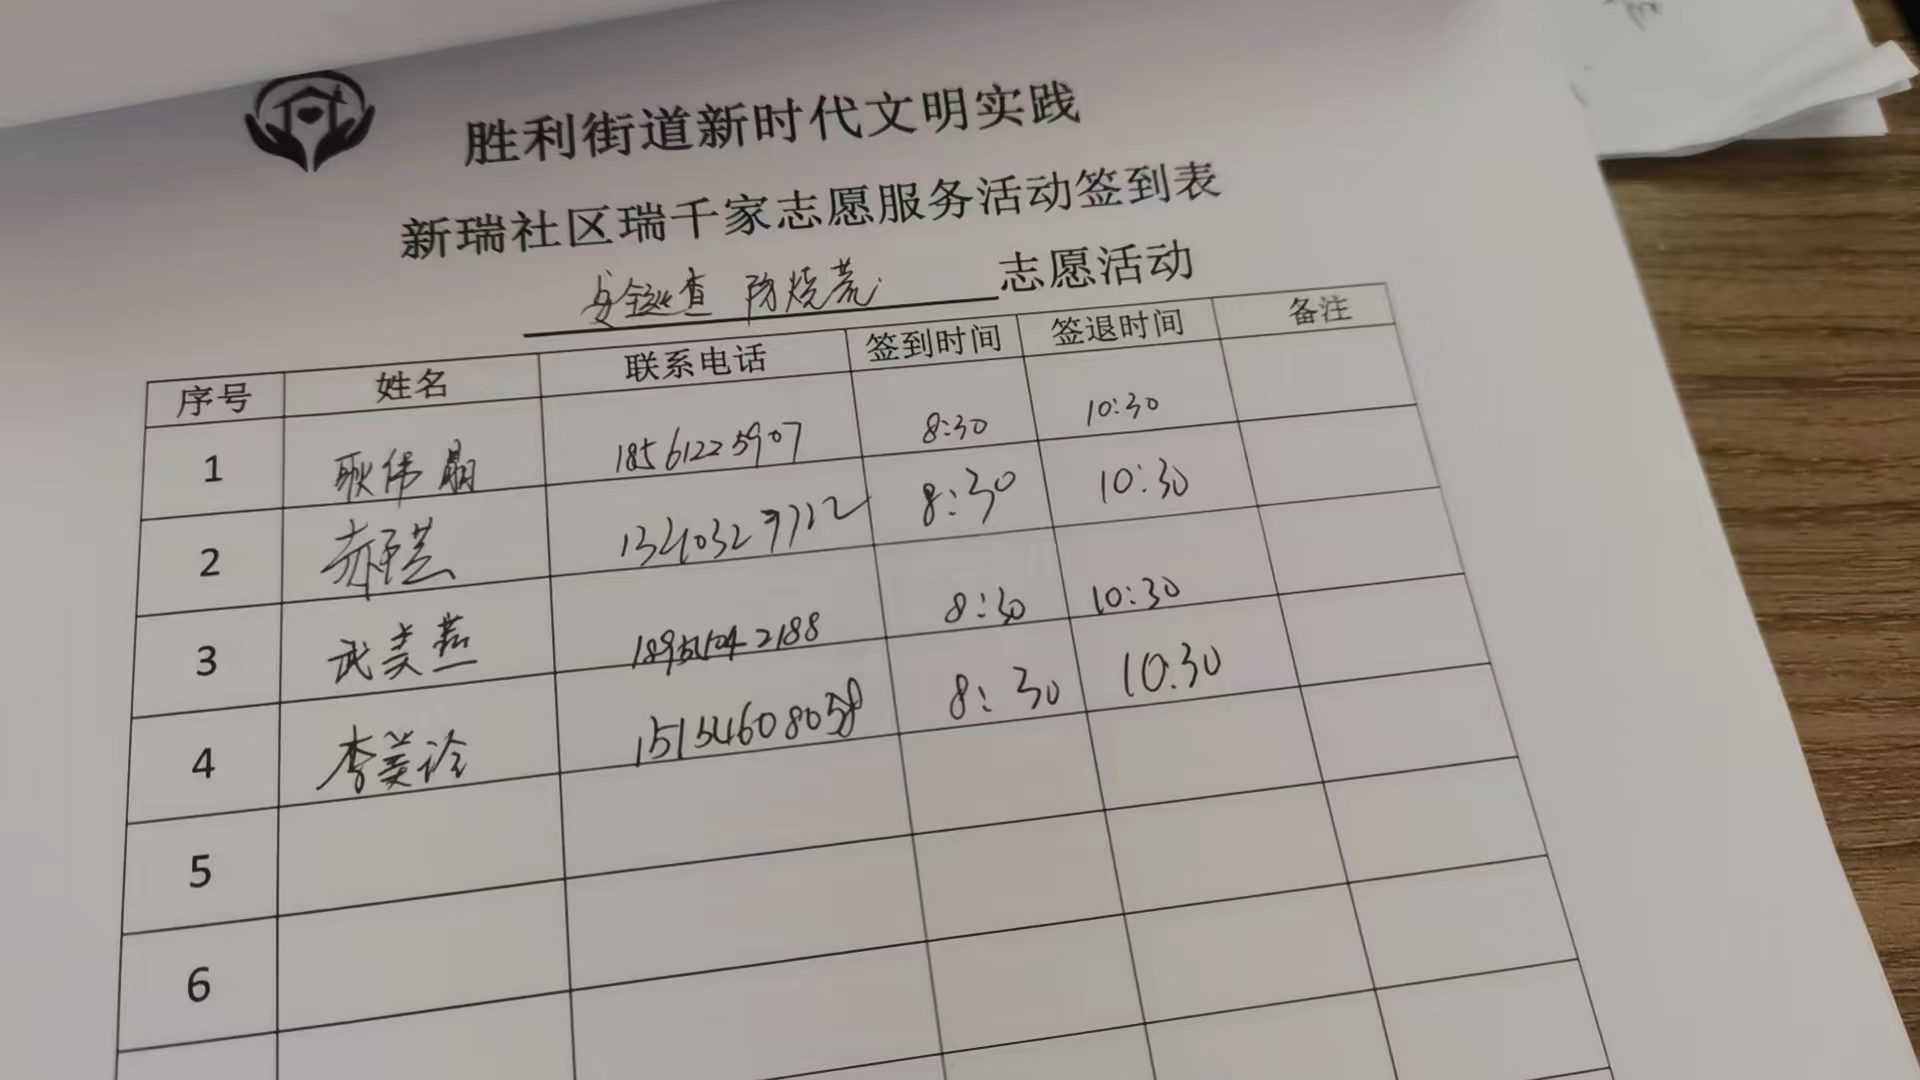 胜利街道新时代文明实践
新瑞社区瑞千家志愿服务活动签到表
安全巡查 防烧荒 志愿活动
序号 姓名 联系电话 签到时间 签退时间 备注
1 耿伟 18561225907 8:30 10:30
2 8:30 10:30
3 武美燕 8:30 10:30
4 李美玲 8:30 10:30
5
6